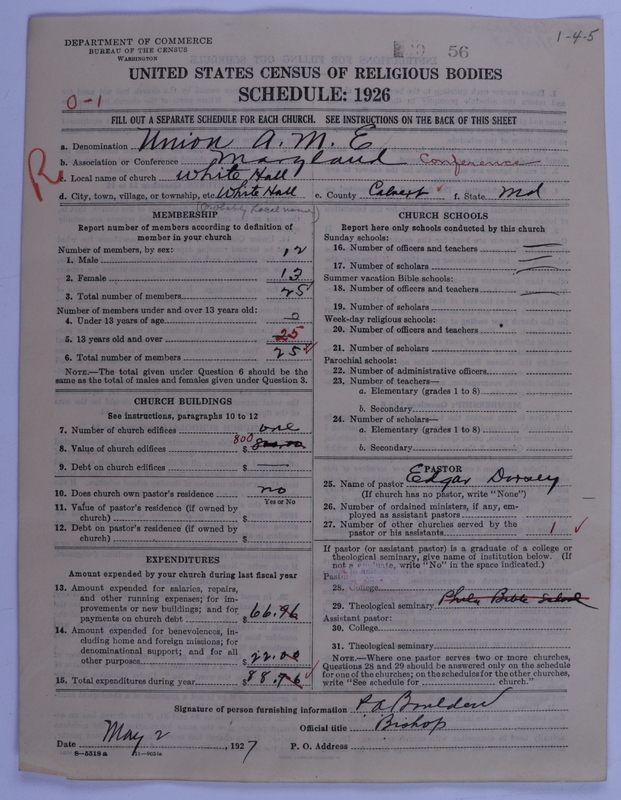 1-4-5
56
DEPARTMENT OF COMMERCE
BUREAU OF THE CENSUS
WASHINGTON
UNITED STATES CENSUS OF RELIGIOUS BODIES
SCHEDULE: 1926
0-1
FILL OUT A SEPARATE SCHEDULE FOR EACH CHURCH. SEE INSTRUCTIONS ON THE BACK OF THIS SHEET
a. Denomination Union A. M. E
b. Association or Conference Maryland Conference
c. Local name of church White Hall
d. City, town, village, or township, etc. White Hall e. County Calvert f. State Md
(Probably local name)
MEMBERSHIP
Report number of members according to definition of
member in your church
Number of members, by sex:
1. Male 12
2. Female 13
3. Total number of members 25
Number of members under and over 13 years old:
4. Under 13 years of age 0
5. 13 years old and over 25
6. Total number of members 25
NOTE.—The total given under Question 6 should be
the same as the total of males and females given under Question 3.
CHURCH BUILDINGS
See instructions, paragraphs 10 to 12
7. Number of church edifices one
8. Value of church edifices $ 800
9. Debt on church edifices $ —
10. Does church own pastor's residence no
Yes or No
11. Value of pastor's residence (if owned by
church) $
12. Debt on pastor's residence (if owned by
church) $
EXPENDITURES
Amount expended by your church during last fiscal year
13. Amount expended for salaries, repairs,
and other running expenses; for im-
provements or new buildings; and for
payments on church debt $ 66.96
14. Amount expended for benevolences, in-
cluding home and foreign missions; for
denominational support; and for all
other purposes $ 22.00
15. Total expenditures during year $ 88.96
CHURCH SCHOOLS
Report here only schools conducted by this church
Sunday schools:
16. Number of officers and teachers —
17. Number of scholars —
Summer vacation Bible schools:
18. Number of officers and teachers —
19. Number of scholars
Week-day religious schools:
20. Number of officers and teachers
21. Number of scholars
Parochial schools:
22. Number of administrative officers
23. Number of teachers—
a. Elementary (grades 1 to 8)
b. Secondary
24. Number of scholars—
a. Elementary (grades 1 to 8)
b. Secondary
PASTOR
25. Name of pastor Edgar Dorsey
(If church has no pastor, write "None")
26. Number of ordained ministers, if any, em-
ployed as assistant pastors
27. Number of other churches served by the
pastor or his assistants 1
If pastor (or assistant pastor) is a graduate of a college or
theological seminary, give name of institution below. (If
not a graduate, write "No" in the space indicated.)
Pastor:
28. College
29. Theological seminary Phila Bible School
Assistant pastor:
30. College
31. Theological seminary
NOTE.—Where one pastor serves two or more churches,
Questions 28 and 29 should be answered only on the schedule
for one of the churches; on the schedules for the other churches,
write "See schedule for church."
Signature of person furnishing information P A Boulden
Official title Bishop
Date May 2, 1927 P. O. Address
8—5518 a